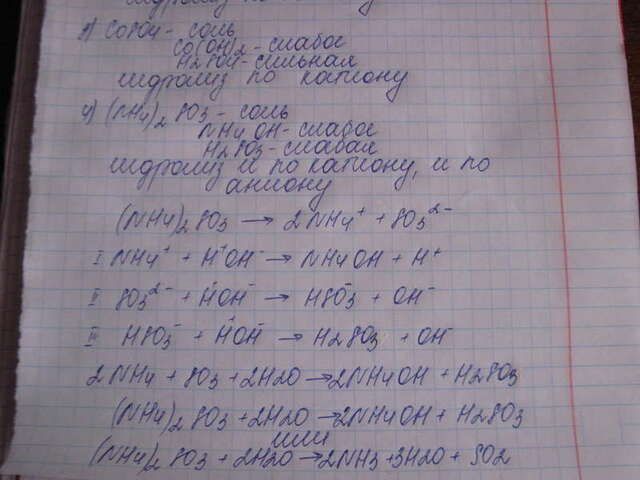 3) CoSO4 - соль
Co(OH)2 - слабое
H2SO4 - сильная
гидролиз по катиону
4) (NH4)2SO3 - соль
NH4OH - слабое
H2SO3 - слабая
гидролиз и по катиону, и по
аниону
(NH4)2SO3 → 2NH4⁺ + SO3²⁻
I NH4⁺ + H⁺OH⁻ → NH4OH + H⁺
II SO3²⁻ + H⁺OH⁻ → HSO3⁻ + OH⁻
III HSO3⁻ + H⁺OH⁻ → H2SO3 + OH⁻
2NH4 + SO3 + 2H2O → 2NH4OH + H2SO3
(NH4)2SO3 + 2H2O → 2NH4OH + H2SO3
или
(NH4)2SO3 + 2H2O → 2NH3 + 3H2O + SO2